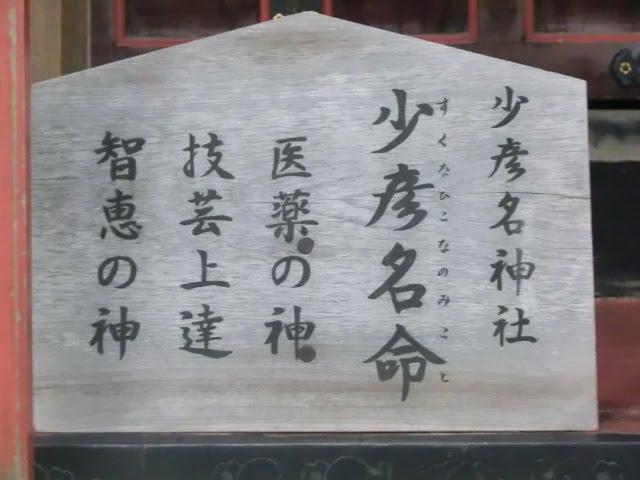 少彦名神社
少彦名命
すくなひこなのみこと
医薬の神
技芸上達
智恵の神